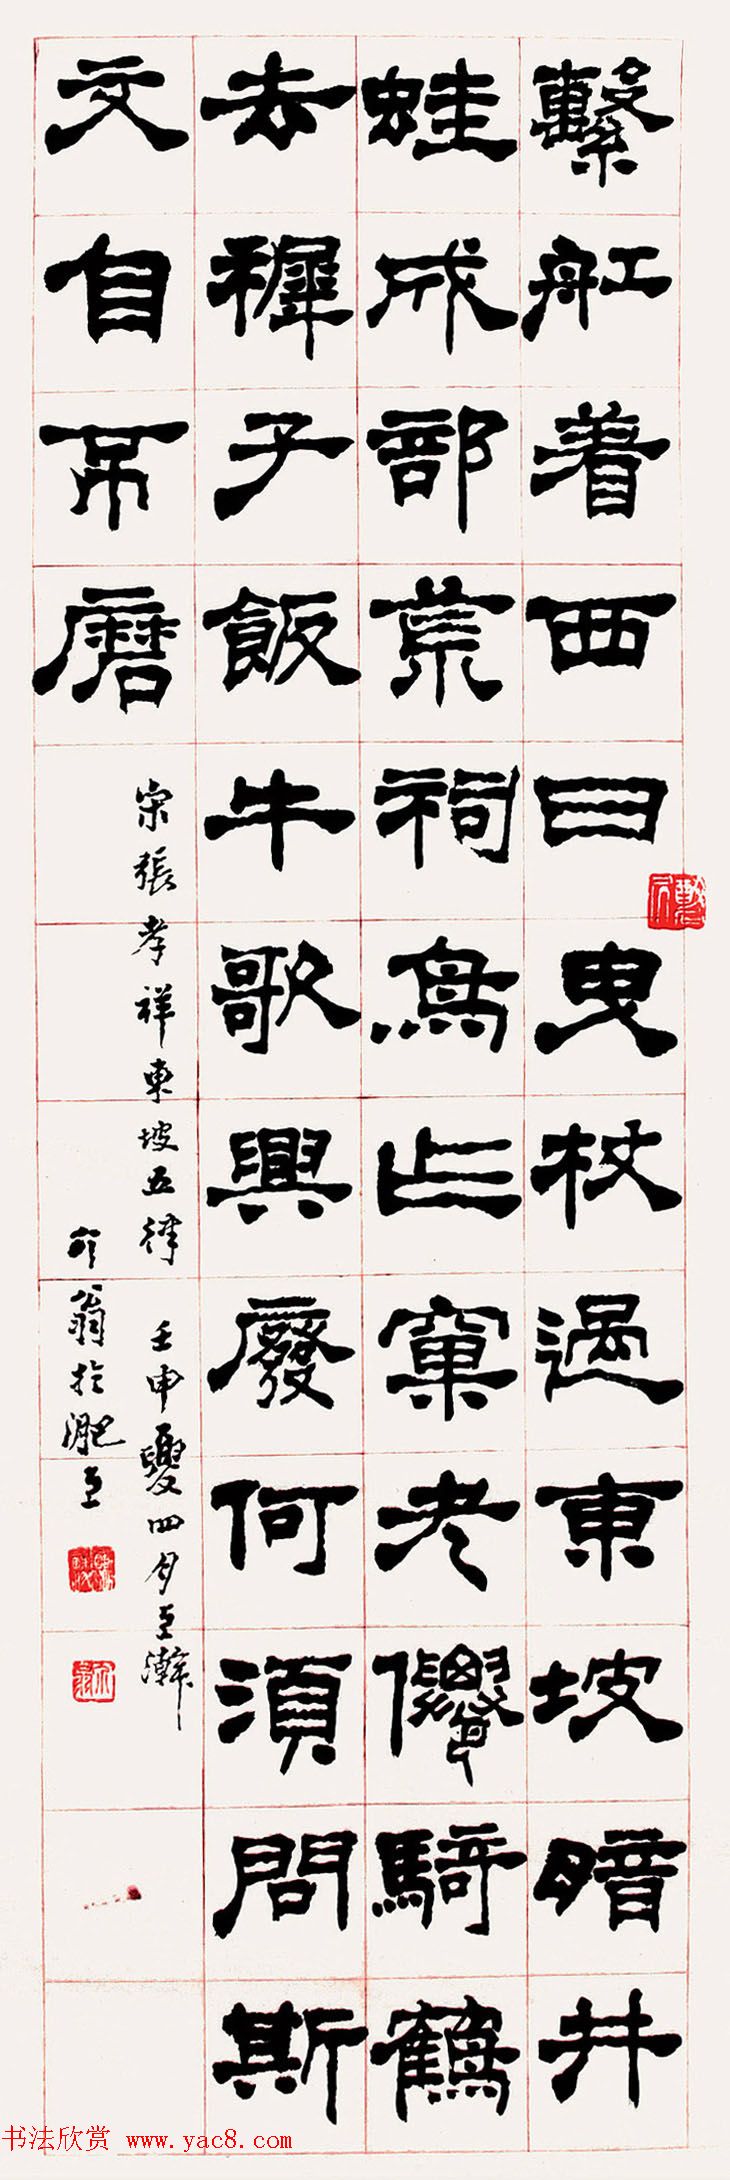 繫舡着西日曳杖過東坡暗井
蛙成部荒祠鳥占窠老僊騎鶴
去穉子飯牛歌興廢何須問斯
文自不磨
宋張孝祥東坡五律 壬申夏四月亞瀚
翁於淝上
书法欣赏 www.yac8.com